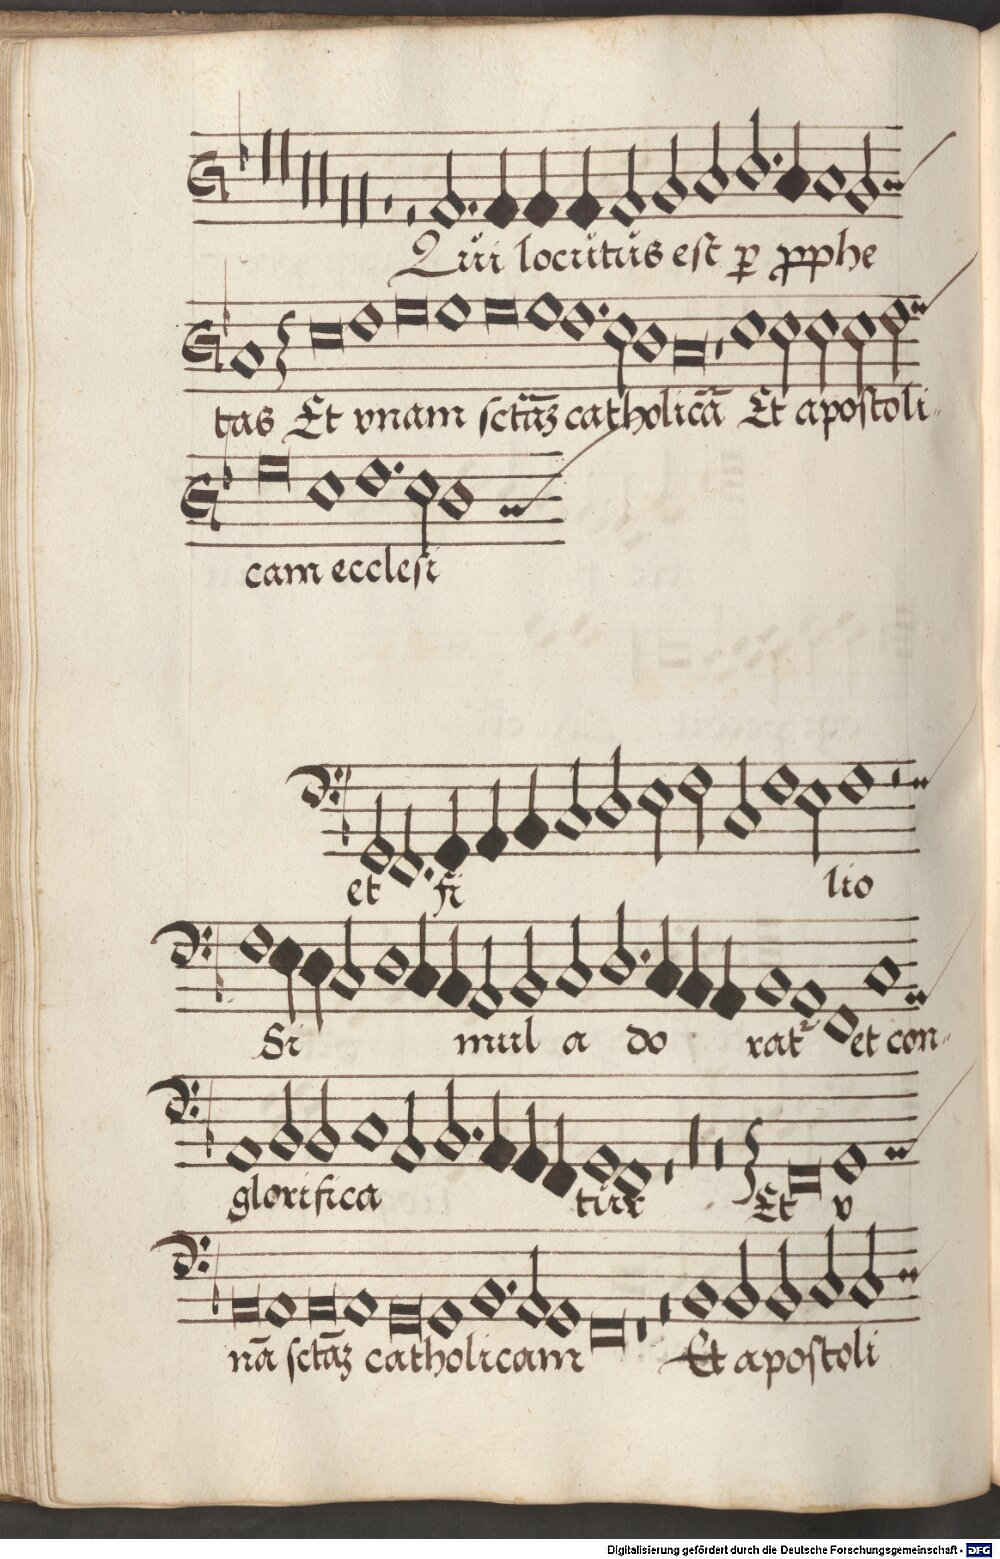 Qui locutus est ꝑ ꝓphe
tas Et vnam sctāȝ catholicā Et apostoli-
cam ecclesi
et fi lio
Si mul a do rat² et con-
glorifica tur Et v
nā sctāȝ catholicam Et apostoli
Digitalisierung gefördert durch die Deutsche Forschungsgemeinschaft - DFG